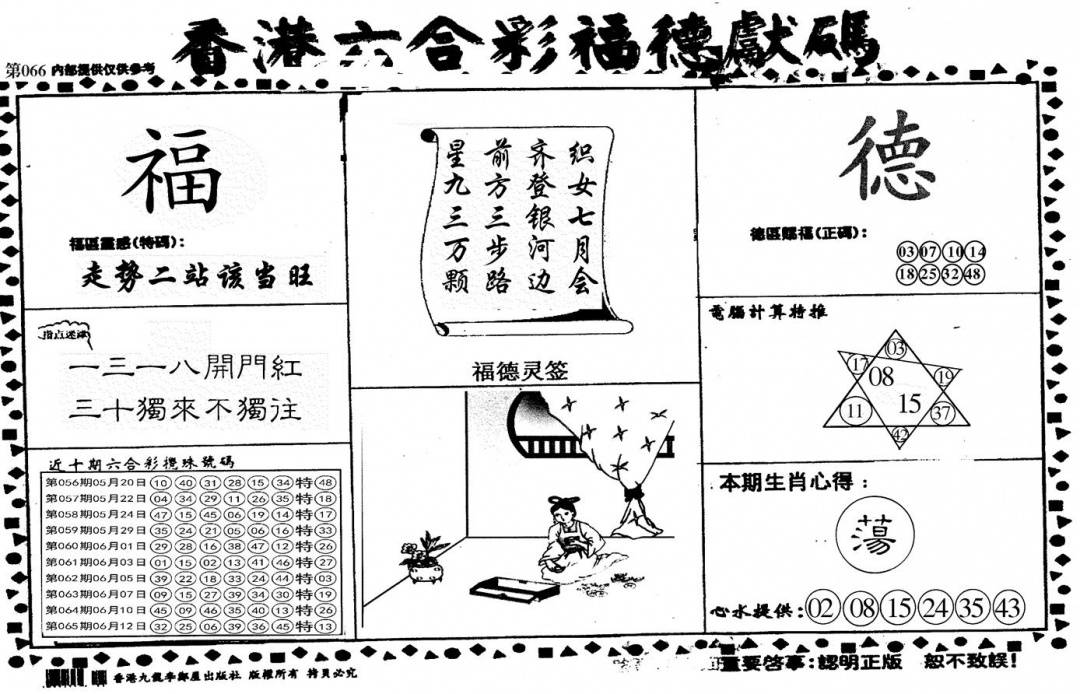 香港六合彩福德獻碼
第066 内部提供仅供参考
福
福區靈感(特碼):
走势二站该当旺
指点迷津
一三一八開門紅
三十獨來不獨往
近十期六合彩攪珠號碼
第056期05月20日 10 40 31 28 15 34 特 48
第057期05月22日 04 34 29 11 26 35 特 18
第058期05月24日 47 15 45 06 19 14 特 17
第059期05月29日 35 24 21 05 06 16 特 33
第060期06月01日 29 28 16 38 47 12 特 26
第061期06月03日 01 15 02 13 41 46 特 27
第062期06月05日 39 22 18 33 24 44 特 03
第063期06月07日 09 15 27 39 34 30 特 19
第064期06月10日 45 09 46 35 40 13 特 26
第065期06月12日 32 25 06 39 36 45 特 13
织女七月会
齐登银河边
前方三步路
星九三万颗
福德灵签
德
德區賜福(正碼):
03 07 10 14
18 25 32 48
電腦計算特推
03
17 08 19
11 15 37
42
本期生肖心得:
蕩
心水提供: 02 08 15 24 35 43
香港九龍李鄭屋出版社 版權所有 拷貝必究
重要啓事:認明正版 恕不致誤!